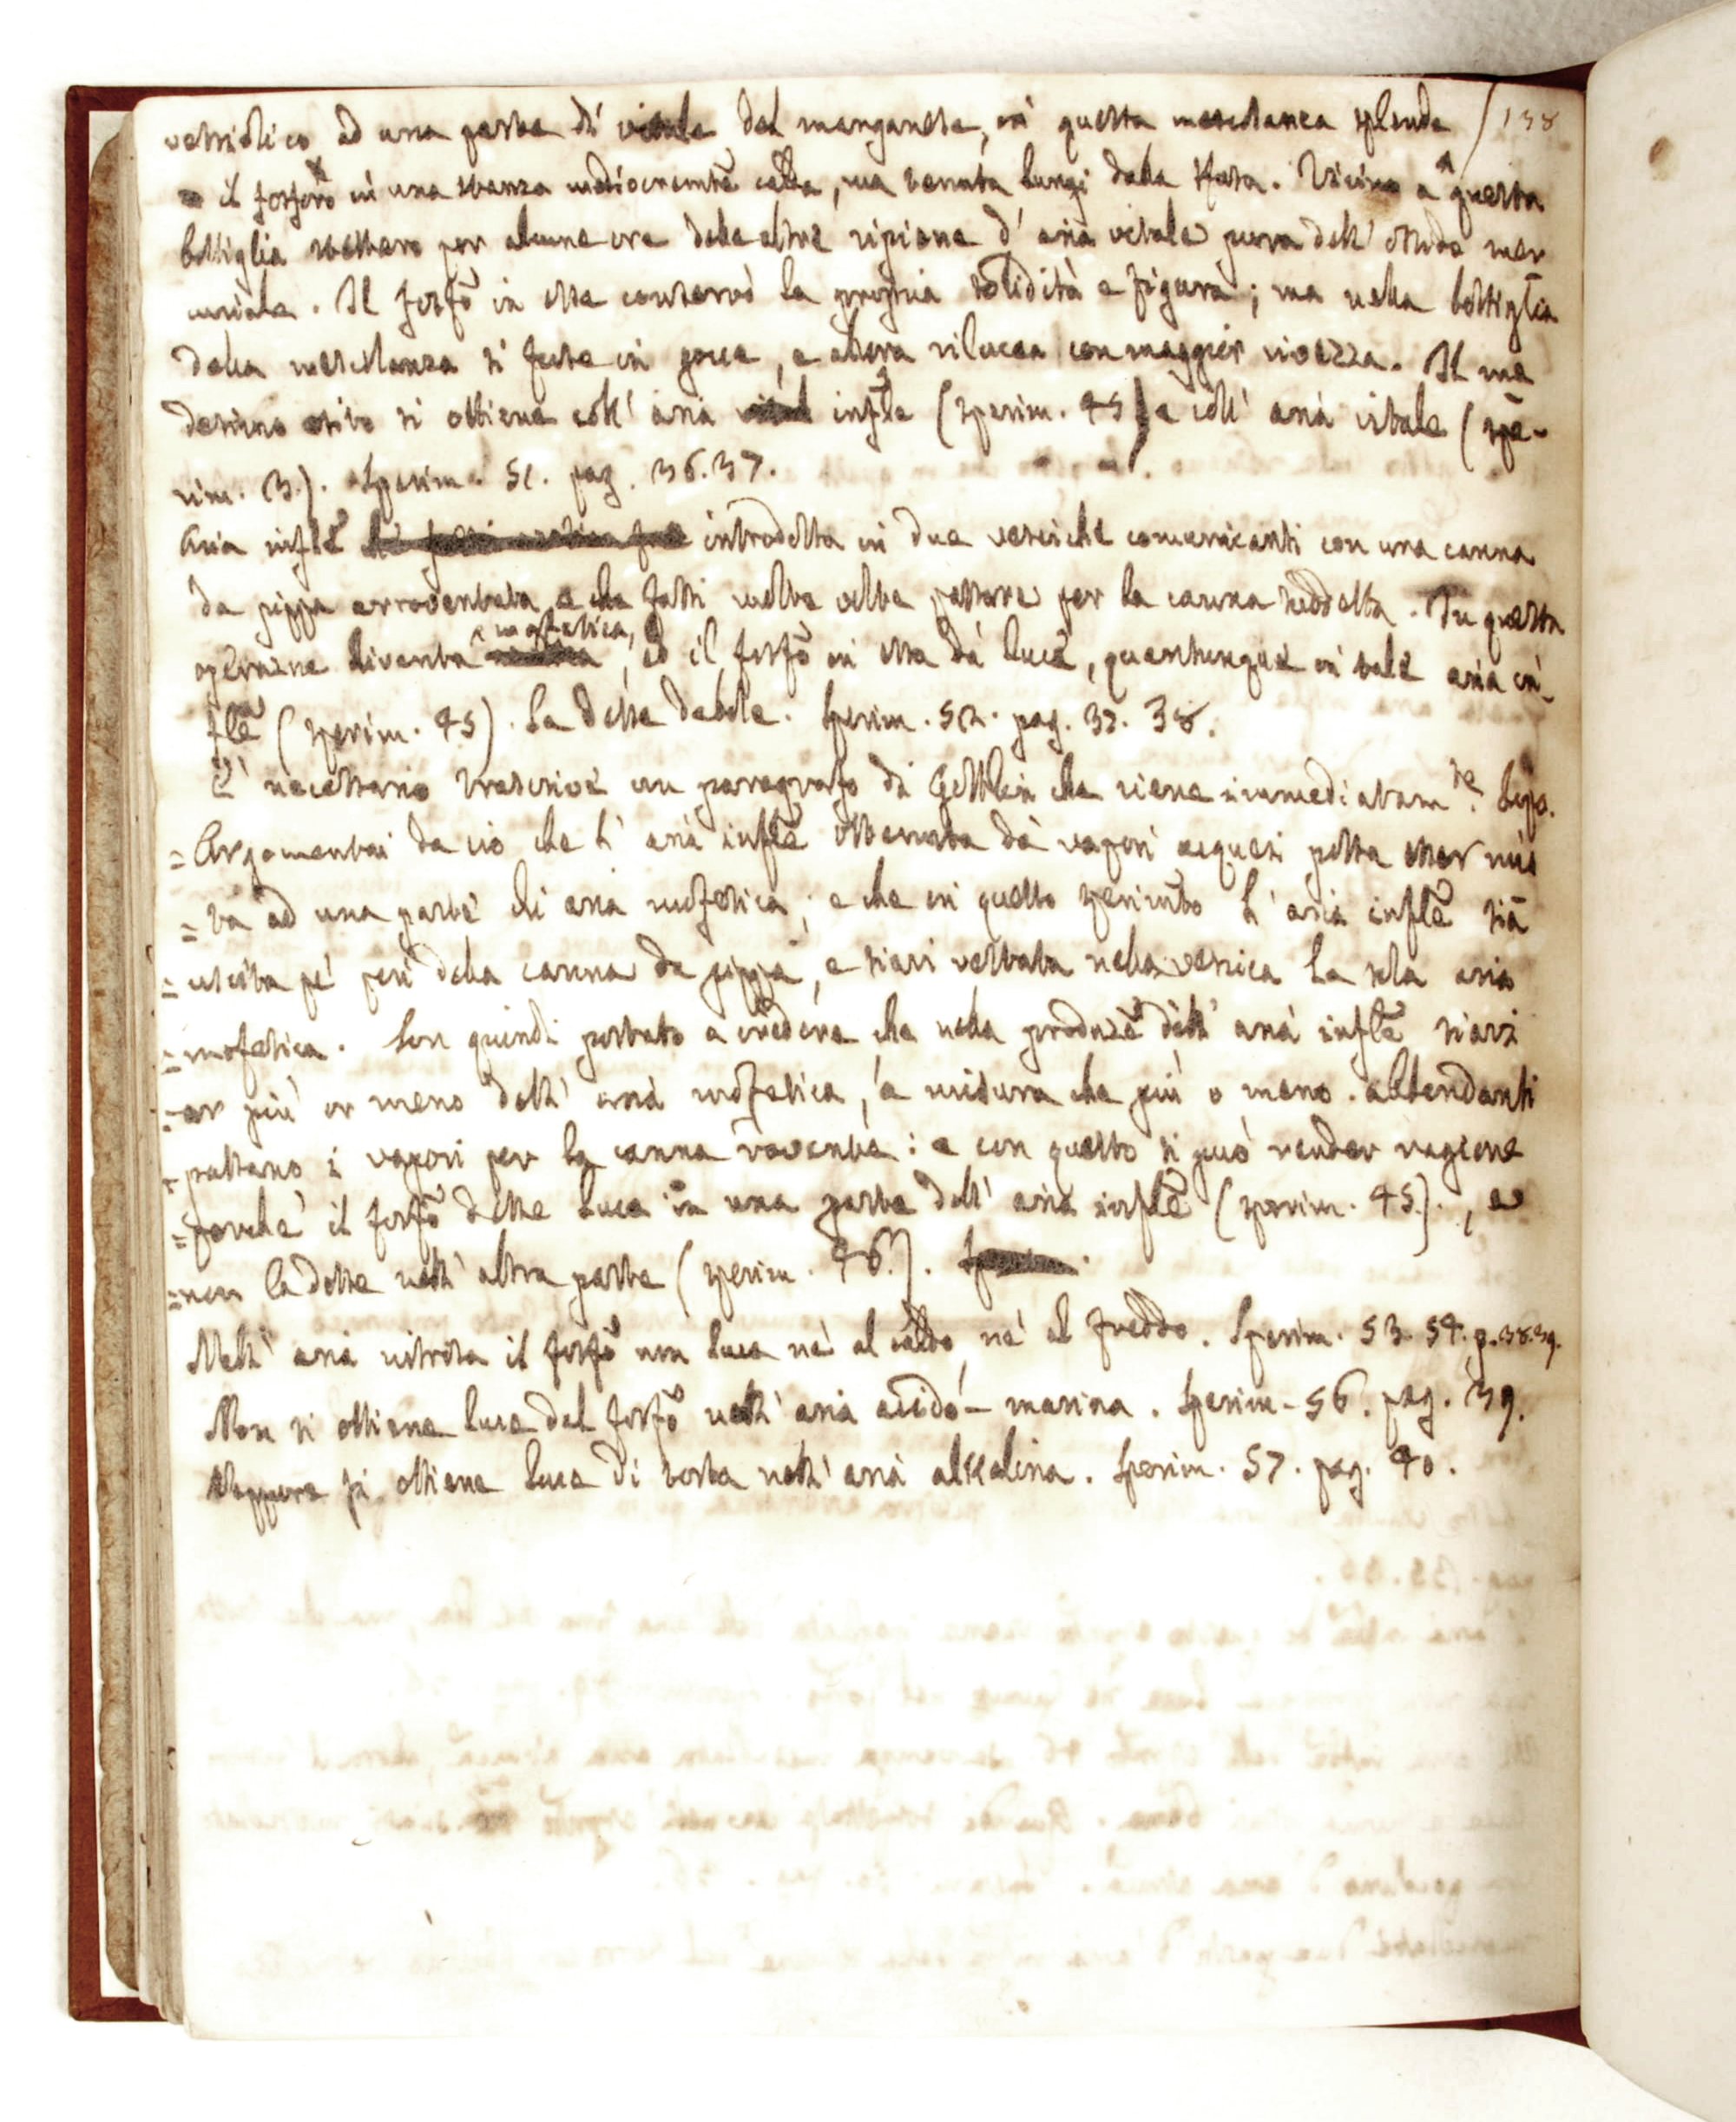 138
vetriolico ad una parte di vitale del manganese, in questa mescolanza splende
il fosforo in una stanza mediocremte calda, ma tenuta lungi dalla stufa. Vicino a questa
bottiglia stettero per alcune ore delle altre ripiene d' aria vitale pura dell' ossido mer
curiale. Il fosfo in esse conservò la propria solidità e figura; ma nella bottiglia
della mescolanza si fuse in gocce, e allora rilucea con maggior vivezza. Il me
desimo esito si ottiene coll' aria infle (sperim. 45) e coll' aria vitale (spe-
rim. 3.). Sperim. 51. pag. 36.37.
Aria infle introdotta in due vesciche comunicanti con una canna
da pippa arroventata, e che fassi molte volte passare per la canna suddetta. In questa
operazne diventa mofetica, ed il fosfo in essa dà luce, quantunque in tale aria in-
fle (sperim. 45). La desse debole. Sperim. 52. pag. 37. 38.
E' necessario trascrivere un paragrafo di Gottling che viene immediatamte dopo.
= Argomentai da ciò che l' aria infle ottenuta da' vapori acquei possa esser mis
= ta ad una parte di aria mofetica; e che in questo sperimto l' aria infle sia
= uscita pe' pori della canna da pippa, e siasi restata nella vescica la sola aria
= mofetica. Son quindi portato a credere che nella produzne dell' aria infle siavi
= or più or meno dell' aria mofetica, a misura che più o meno abbondanti
= passano i vapori per la canna rovente: e con questo si può render ragione
= perchè il fosfo desse luce in una parte dell' aria infle (sperim. 45)., e
= non la desse nell' altra parte (sperim. 46.).
Nell' aria nitrosa il fosfo non luce nè al caldo, nè al freddo. Sperim. 53. 54. p. 38.39.
Non si ottiene luce dal fosfo nell' aria acido-marina. Sperim. 56. pag. 39.
Neppure si ottiene luce di sorta nell' aria alkalina. Sperim. 57. pag. 40.